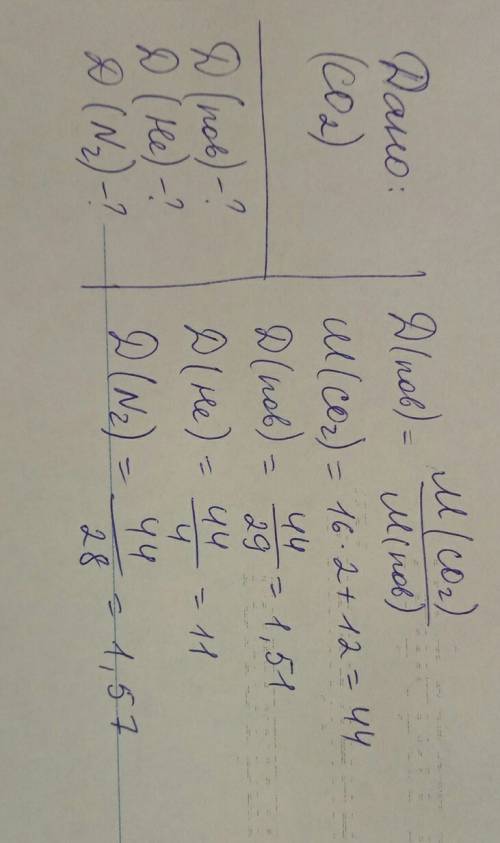 Дано:
(CO₂)
D(пов)-?
D(He)-?
D(N₂)-?
D(пов) = M(CO₂)/M(пов)
M(CO₂) = 16·2+12=44
D(пов) = 44/29 = 1,51
D(He) = 44/4 = 11
D(N₂) = 44/28 = 1,57